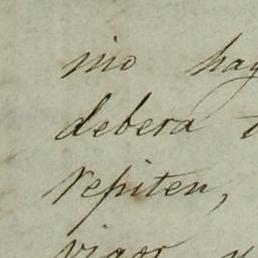 mo hay
debera
repiten,
vigor